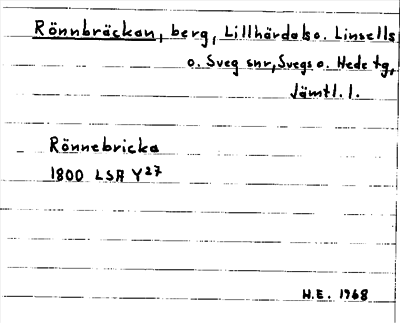 Rönnbräckan, berg, Lillhärdals o. Linsells
o. Sveg snr, Svegs o. Hede tg,
Jämtl. l.
Rönnebricka
1800 LSA Y27
H.E. 1968